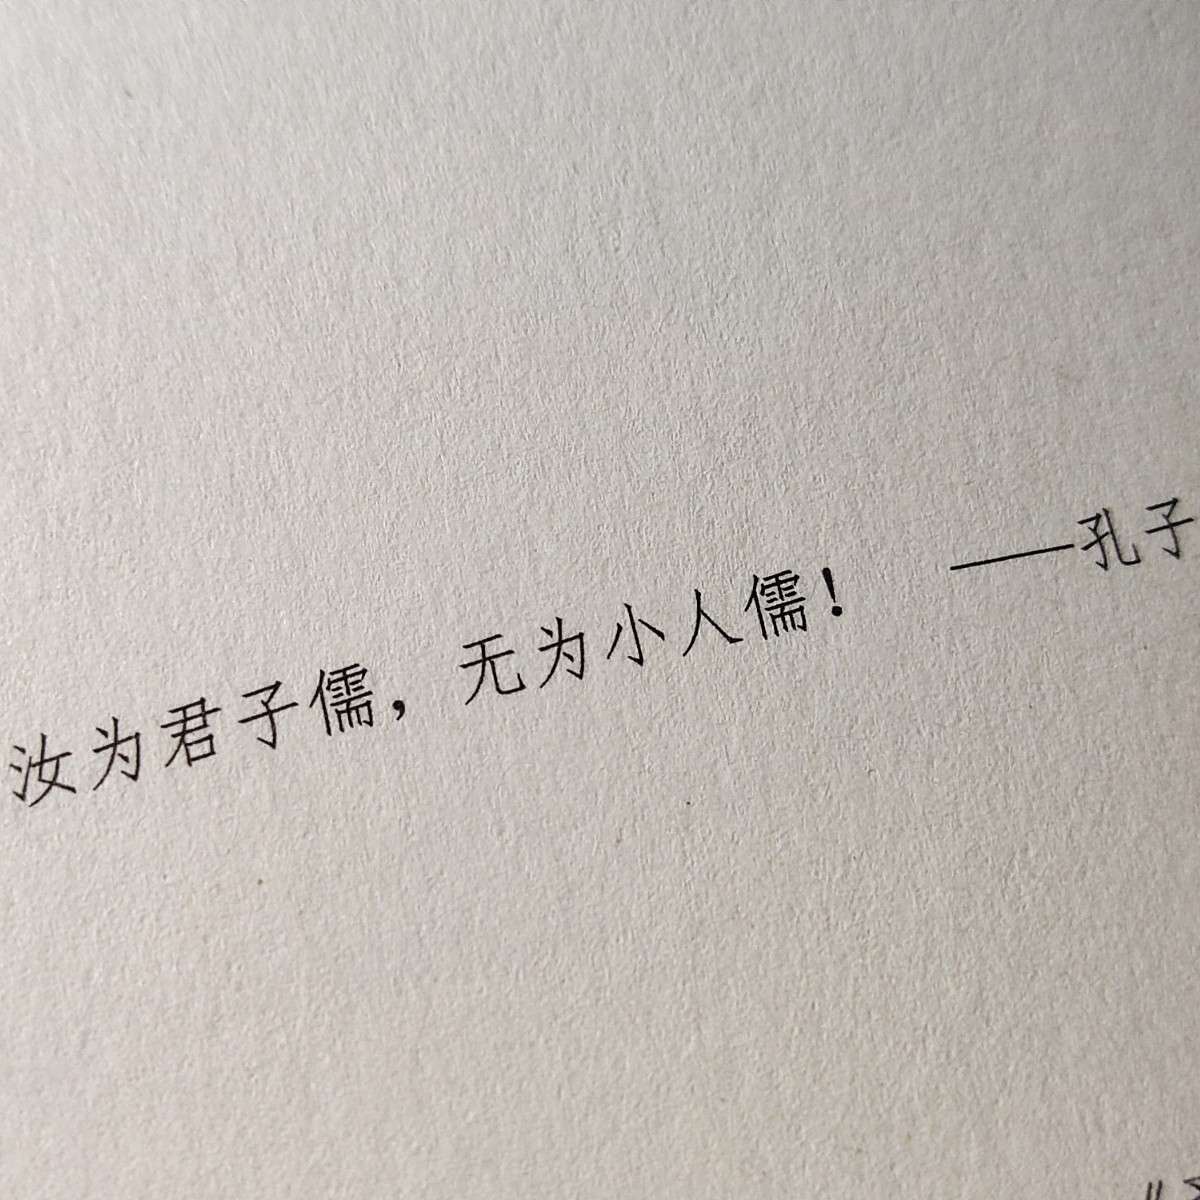 汝为君子儒，无为小人儒！ ——孔子